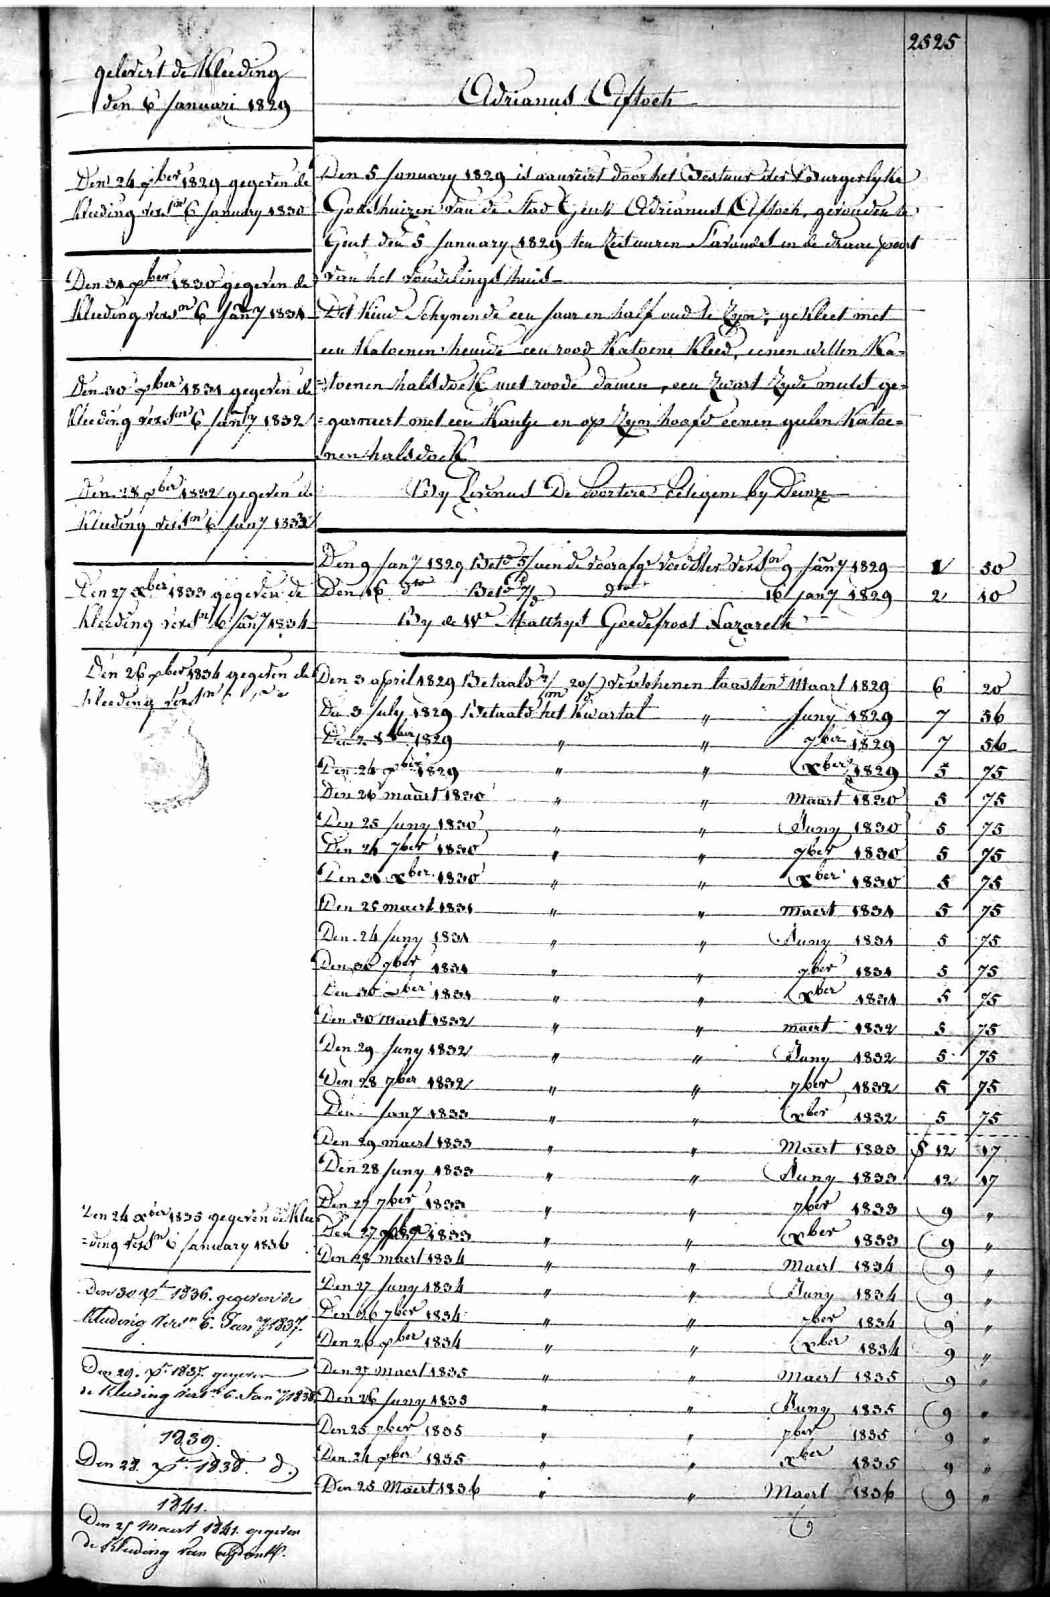 2525
gelevert de Kleeding
den 6 Januari 1829
Adrianus Afstoch
Den 24 xber 1829 gegeven de
Kleeding versn 6 January 1830
Den 31 xber 1830 gegeven de
Kleeding versn 6 Jany 1831
Den 30 xber 1831 gegeven de
Kleeding versn 6 Jany 1832
Den 28 xber 1832 gegeven de
Kleeding versn 6 Jany 1833
Den 27 xber 1833 gegeven de
Kleeding versn 6 Jany 1834
Den 26 xber 1834 gegeven de
Kleeding versn
Den 24 xber 1835 gegeven de Klee
=ding versn 6 January 1836
Den 30 xr 1836. gegeven de
Kleeding versn 6. Jany 1837.
Den 29. xr 1837. gegeven
de Kleeding versn 6. Jany 1838
1839.
Den 28. xr 1838. d.
1841.
Den 25 Maert 1841. gegeven
de Kleeding van
Den 5 January 1829 is aanveirt door het Bestuur der Burgerlyke
Godshuizen van de Stad Gent Adrianus Afstoch, gevonden te
Gent den 5 January 1829 ten zeetuuren s'avonds in de draae poort
van het vondelingshuis
Dit Kind Schynende een Jaar en half oud te Zyn, gekleet met
een Katoenen hemde een rood Katoene Kleed, eenen witten Ka-
=toenen halsdoek met roode damen, een zwart Zyde muts ge-
=garneert met een Kantje en op Zyn hoofd eenen gelen Katoe-
nen halsdoek
By Livinus De Coortere Petegem by Deinze
Den 9 Jany 1829 Betd 5/ aen de voorafge voedster versn 9 Jany 1829 1 50
Den 16 dto Betd dto 16 Jany 1829 2 10
By de We Matthys Goedefroot Lazareth
Den 3 april 1829 Betaald verschenen laasten Maart 1829 6 20
Den 3 July 1829 Betaald het Kwartal " Juny 1829 7 56
Den 2 8ber 1829 " " 7ber 1829 7 56
Den 24 xber 1829 " " xber 1829 5 75
Den 26 maart 1830 " " Maart 1830 5 75
Den 25 Juny 1830 " " Juny 1830 5 75
Den 24 7ber 1830 " " 7ber 1830 5 75
Den 31 xber 1830 " " xber 1830 5 75
Den 25 maert 1831 " " Maert 1831 5 75
Den 24 Juny 1831 " " Juny 1831 5 75
Den 30 7ber 1831 " " 7ber 1831 5 75
Den 30 xber 1831 " " xber 1831 5 75
Den 30 Maert 1832 " " maert 1832 5 75
Den 29 Juny 1832 " " Juny 1832 5 75
Den 28 7ber 1832 " " 7ber 1832 5 75
Den Jany 1833 " " xber 1832 5 75
Den 29 maert 1833 " " Maert 1833 f 12 17
Den 28 Juny 1833 " " Juny 1833 12 17
Den 27 7ber 1833 " " 7ber 1833 9 "
Den 27 xber 1833 " " xber 1833 9 "
Den 28 maert 1834 " " Maert 1834 9 "
Den 27 Juny 1834 " " Juny 1834 9 "
Den 26 7ber 1834 " " 7ber 1834 9 "
Den 26 xber 1834 " " xber 1834 9 "
Den 27 Maert 1835 " " Maert 1835 9 "
Den 26 Juny 1835 " " Juny 1835 9 "
Den 25 7ber 1835 " " 7ber 1835 9 "
Den 24 xber 1835 " " xber 1835 9 "
Den 25 Maert 1836 " " Maert 1836 9 "